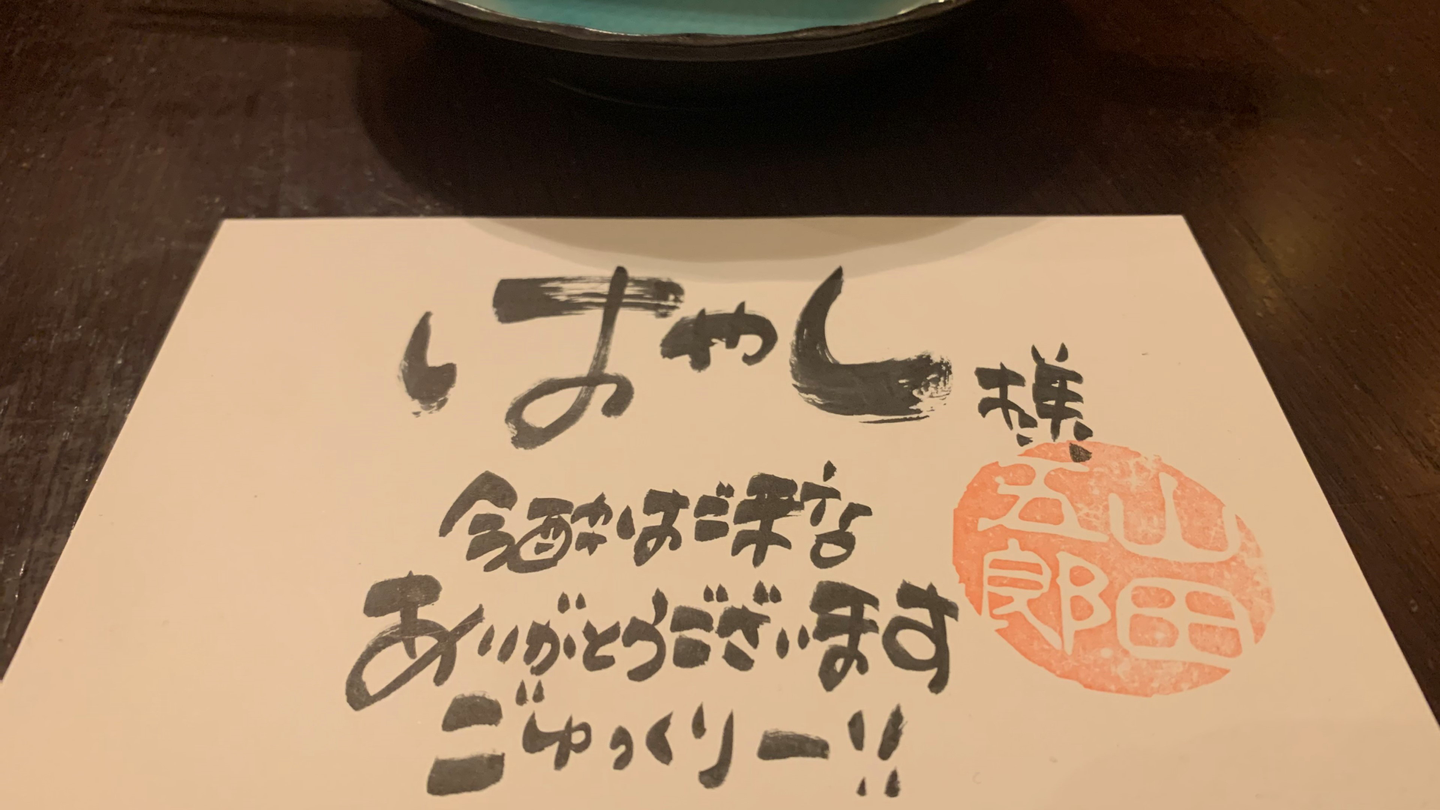 はやし様
今酔はご来店
ありがとうございます
ごゆっくりー!!
山田
五郎